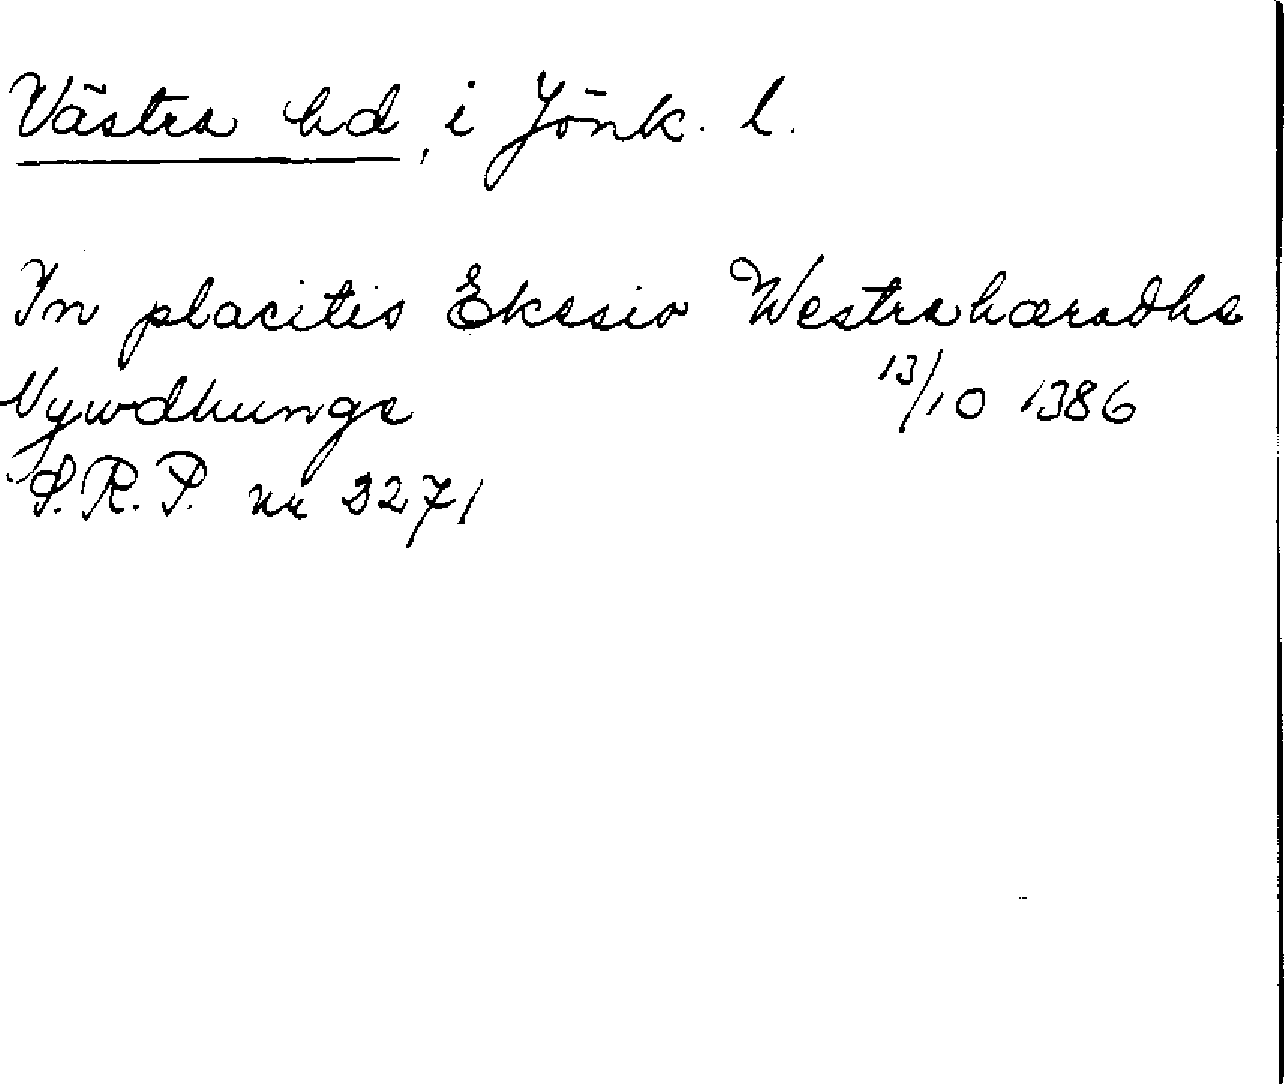 Västra hd, i Jönk. l.
In placitis Ekssio Westrahæradhs
Nywdhungs 13/10 1386
S.R.P. nr 2271